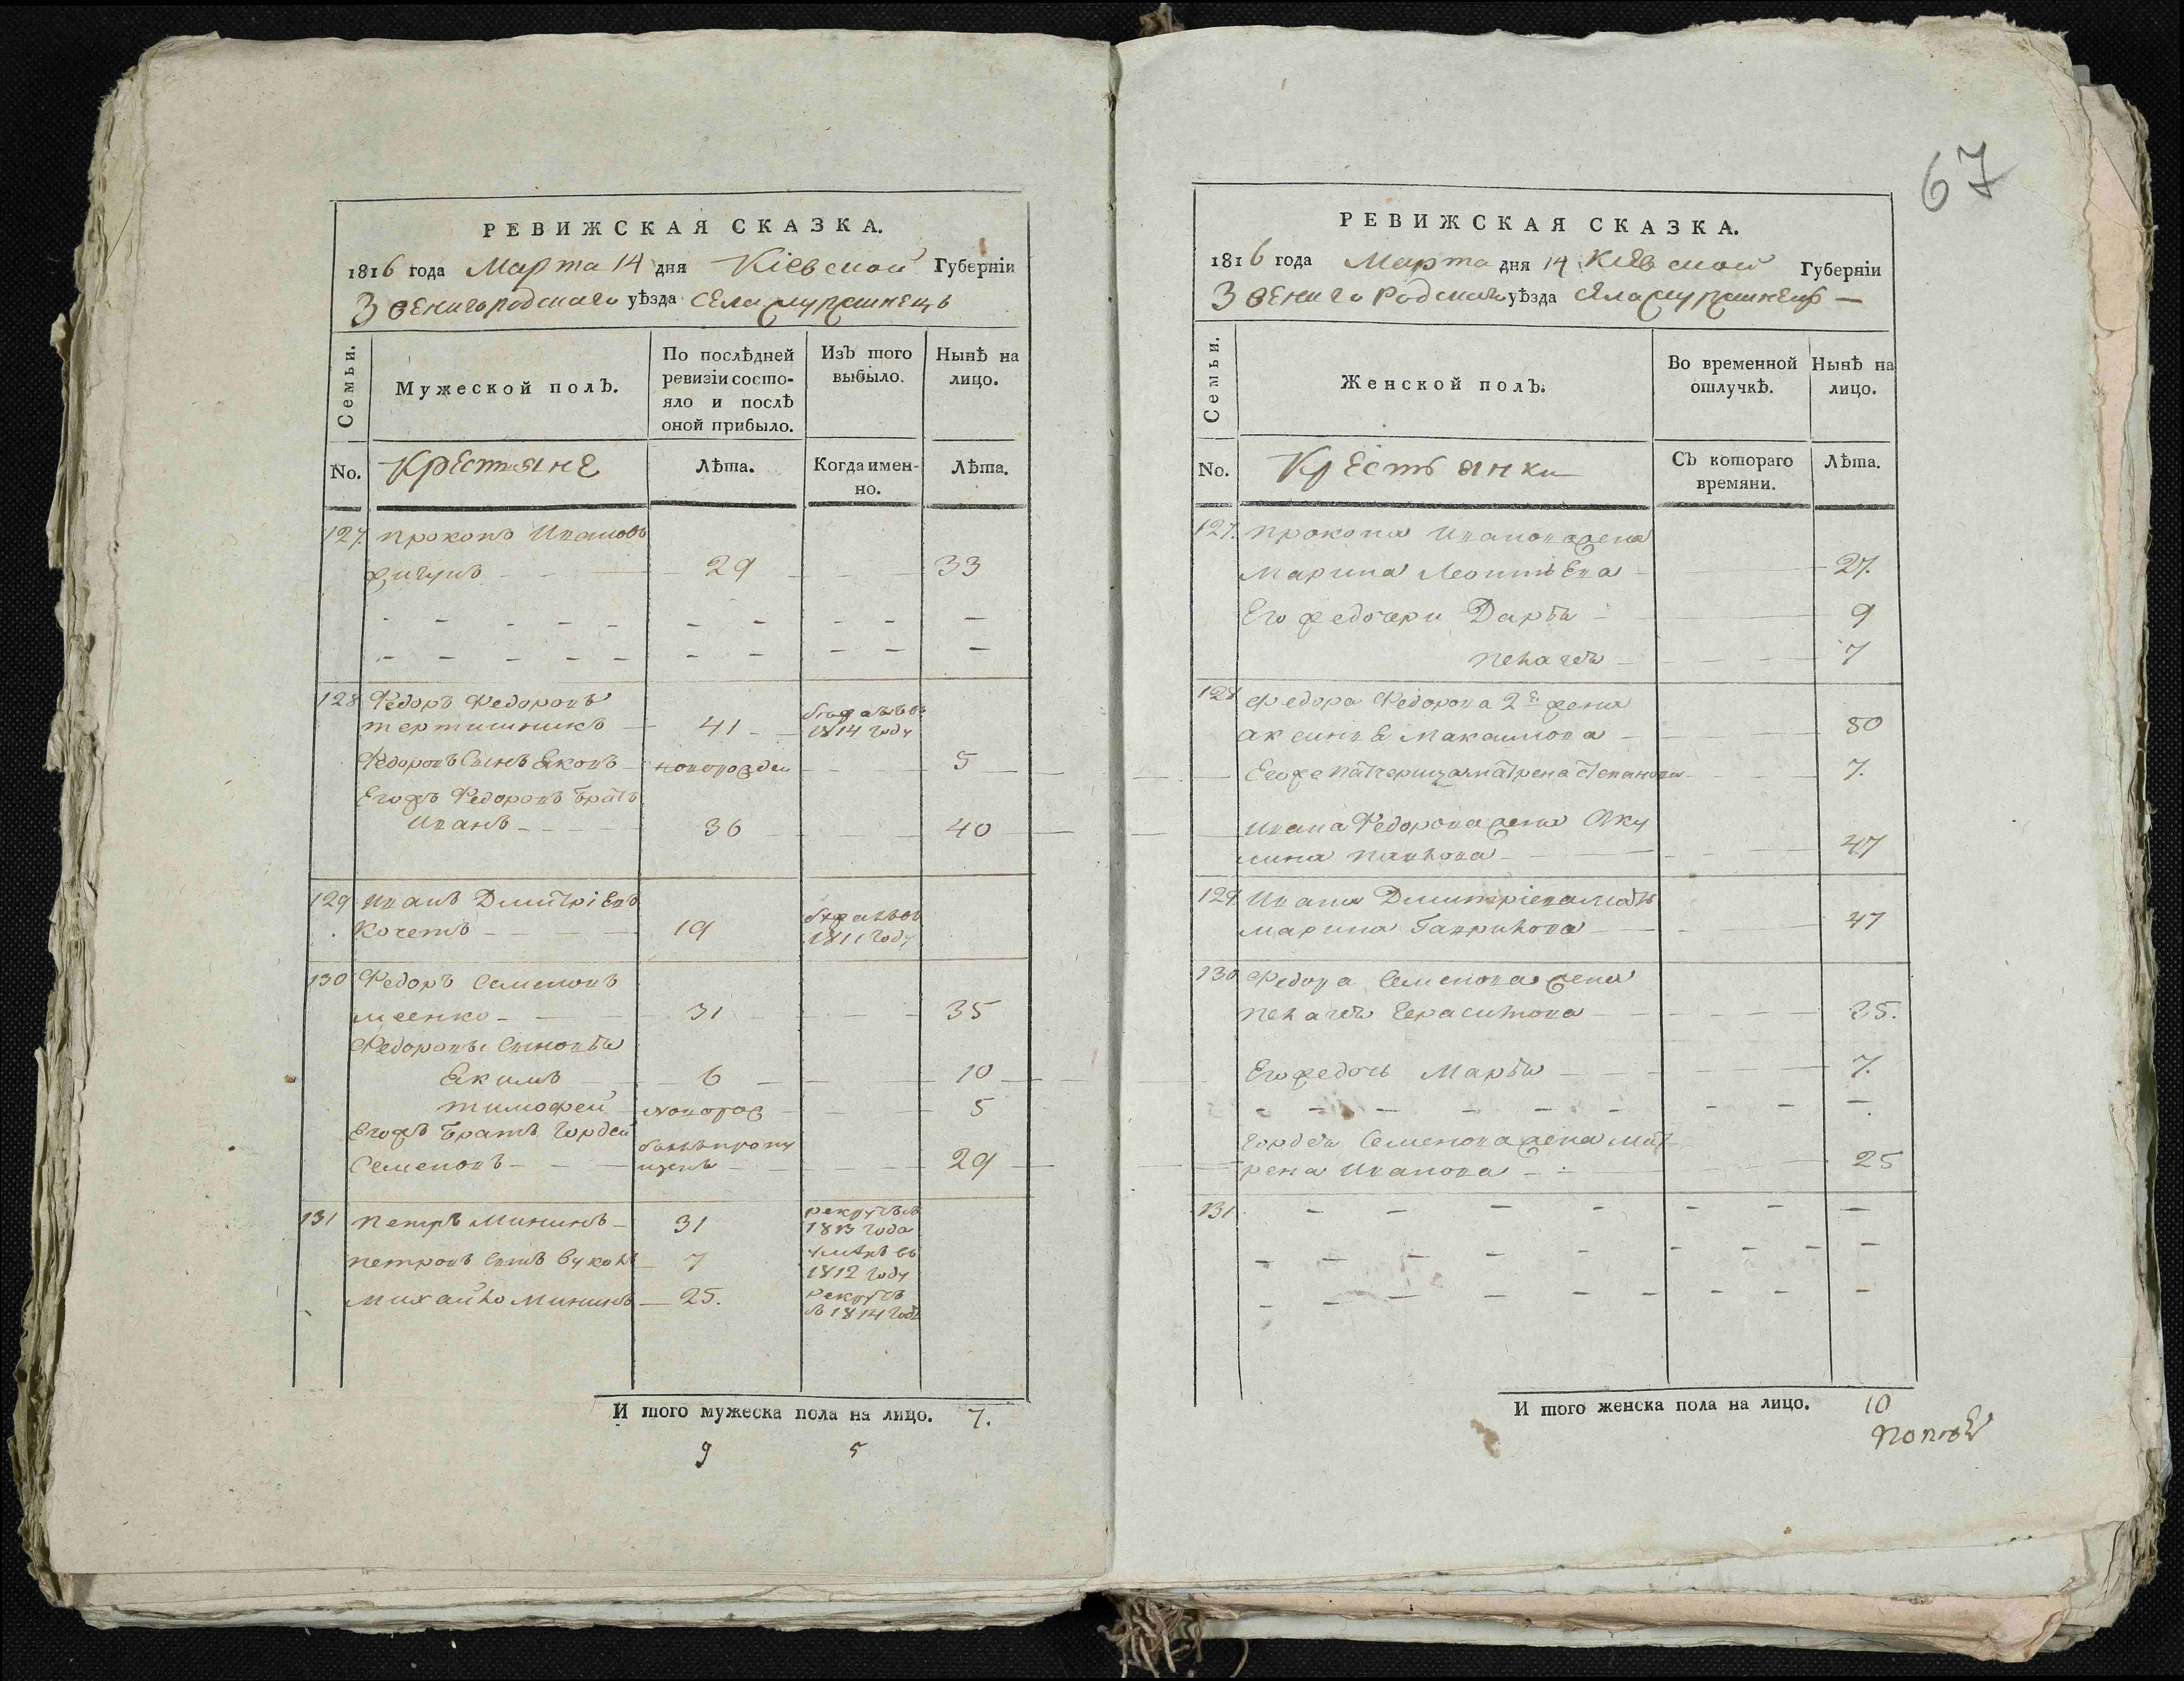 67
РЕВИЖСКАЯ СКАЗКА.
1816 года Марта 14 дня Кіевской Губерніи
Звенигородскаго уѣзда села
Семьи.
Мужеской полъ.
По послѣдней ревизіи состо-
яло и послѣ
оной прибыло.
Изъ того
выбыло.
Нынѣ на
лицо.
No.
Крестьяне
Лѣта.
Когда имен-
но.
Лѣта.
127. Прокопъ Ивановъ
29 33
128 Федоръ Федоровъ
тертишникъ 41 бежалъ въ
1814 году
Федоровъ Сынъ Яковъ новорожден 5
Егожъ Федоровъ братъ
Иванъ 36 40
129 Иванъ Дмитріевъ
Кочетъ 19 бежалъ въ
1811 году
130 Федоръ Семеновъ
31 35
Федоровы Сыновья
Якимъ 6 10
тимофей новорож 5
Егожъ братъ Гордей былъ пропу
Семеновъ щенъ 29
131 Петръ Мининъ 31 рекрутъ въ
1813 года
Петровъ Сынъ Вуколъ 7 умеръ въ
1812 году
Михайло Мининъ 25. рекрутъ
в 1814 году
И того мужеска пола на лицо. 7.
9 5
РЕВИЖСКАЯ СКАЗКА.
1816 года Марта дня 14 Кіевской Губерніи
Звенигородскаго уѣзда села
Семьи.
Женской полъ.
Во временной
отлучкѣ.
Нынѣ на
лицо.
No.
Крестьянки
Съ котораго
времяни.
Лѣта.
127. Прокопа Иванова жена
Марина Леонтьева 27.
Егожъ дочери Дарья 9
Пелагея 7
128 Федора Федорова 2я жена
аксинья Макаимова 50
Егожъ падчерица матрена степанова 7.
Ивана Федорова жена Аку
лина Павлова 47
129 Ивана Дмитріева мать
марина Гаврилова 47
130 Федора Семенова жена
Пелагея Герасимова 35.
Егоже дочь Марья 7.
Гордея Семенова жена мат
рена Иванова 25
131
И того женска пола на лицо. 10